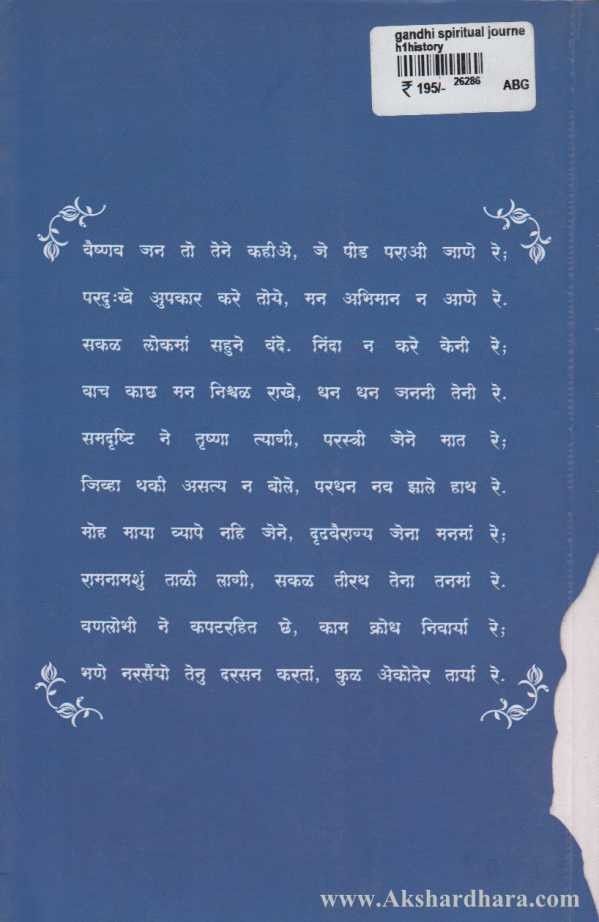 gandhi spiritual journe
h1history
₹ 195/- 26286 ABG
वैष्णव जन तो तेने कहीअे, जे पीड पराओ जाणे रे;
परदुःखे अुपकार करे तोये, मन अभिमान न आणे रे.
सकळ लोकमां सहुने वंदे. निंदा न करे केनी रे;
वाच काछ मन निश्चळ राखे, धन धन जननी तेनी रे.
समदृष्टि ने तृष्णा त्यागी, परस्त्री जेने मात रे;
जिव्हा थकी असत्य न बोले, परधन नव झाले हाथ रे.
मोह माया व्यापे नहि जेने, दृढवैराग्य जेना मनमां रे;
रामनामशुं ताळी लागी, सकळ तीरथ तेना तनमां रे.
वणलोभी ने कपटरहित छे, काम क्रोध निवार्या रे;
भणे नरसैंयो तेनु दरसन करतां, कुळ अेकोतेर तार्या रे.
www.Akshardhara.com